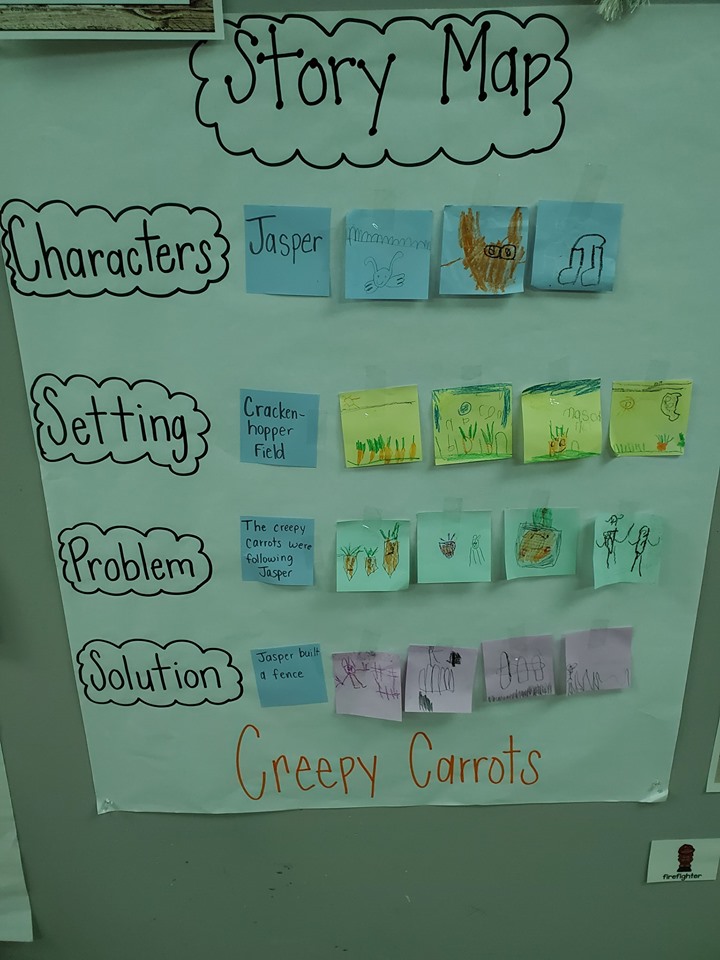 Story Map
Characters
Jasper
Setting
Cracken-
hopper
Field
Problem
The creepy
carrots were
following
Jasper
Solution
Jasper built
a fence
Creepy Carrots
firefighter